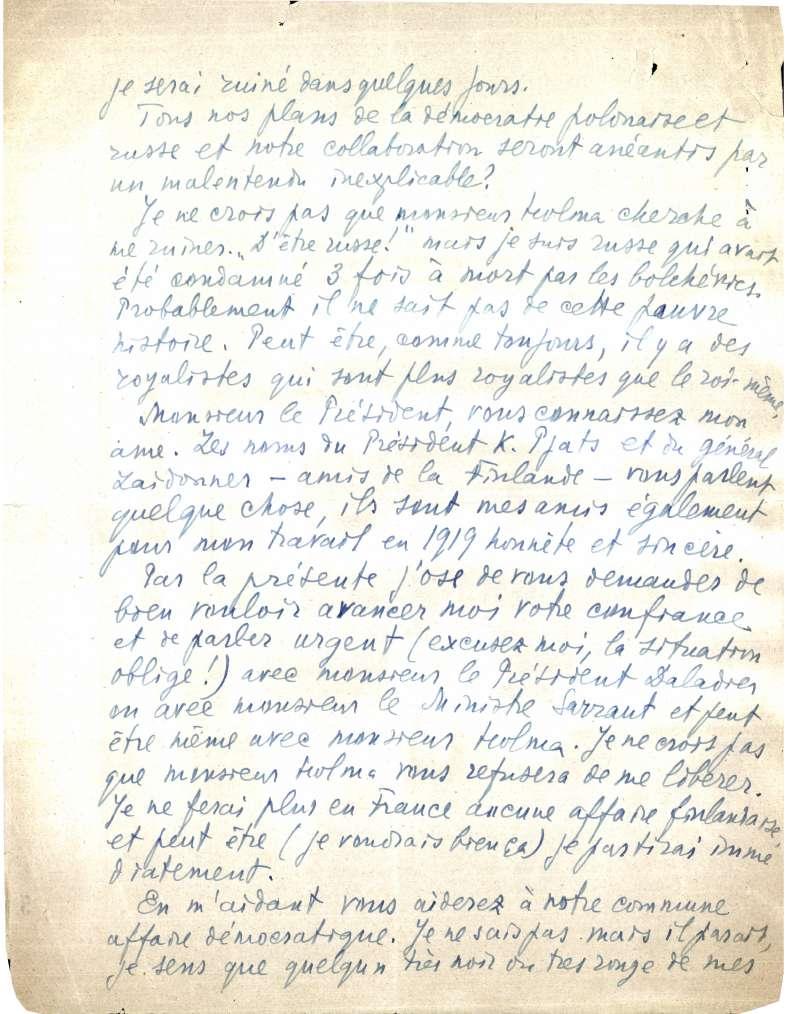 je serai ruiné dans quelques jours.
Tous nos plans de la démocratie polonaise et
russe et notre collaboration seront anéantis par
un malentendu inexplicable?
Je ne crois pas que monsieur Holma cherche à
me ruiner. „D'être russe!" mais je suis russe qui avait
été condamné 3 fois à mort par les bolchévics.
Probablement il ne sait pas de cette pauvre
histoire. Peut être, comme toujours, il y a des
royalistes qui sont plus royalistes que le roi-même.
Monsieur le Président, vous connaissez mon
ame. Les noms du Président K. Pjats et du général
Laidonner – amis de la Finlande – vous parlent
quelque chose, ils sont mes amis également
pour mon travail en 1919 honnête et sincère.
Par la présente j'ose de vous demander de
bien vouloir avancer moi votre confiance
et de parler urgent (excusez moi, la situation
oblige!) avec monsieur le Président Daladier
ou avec monsieur le Ministre Sarraut et peut
être même avec monsieur Holma. Je ne crois pas
que monsieur Holma vous refusera de me libérer.
Je ne ferai plus en France aucune affaire finlandaise
et peut être (je voudrais bien ça) je partirai immé
diatement.
En m'aidant vous aiderez à notre commune
affaire démocratique. Je ne sais pas mais il parait,
je sens que quelqun très noir ou très rouge de mes